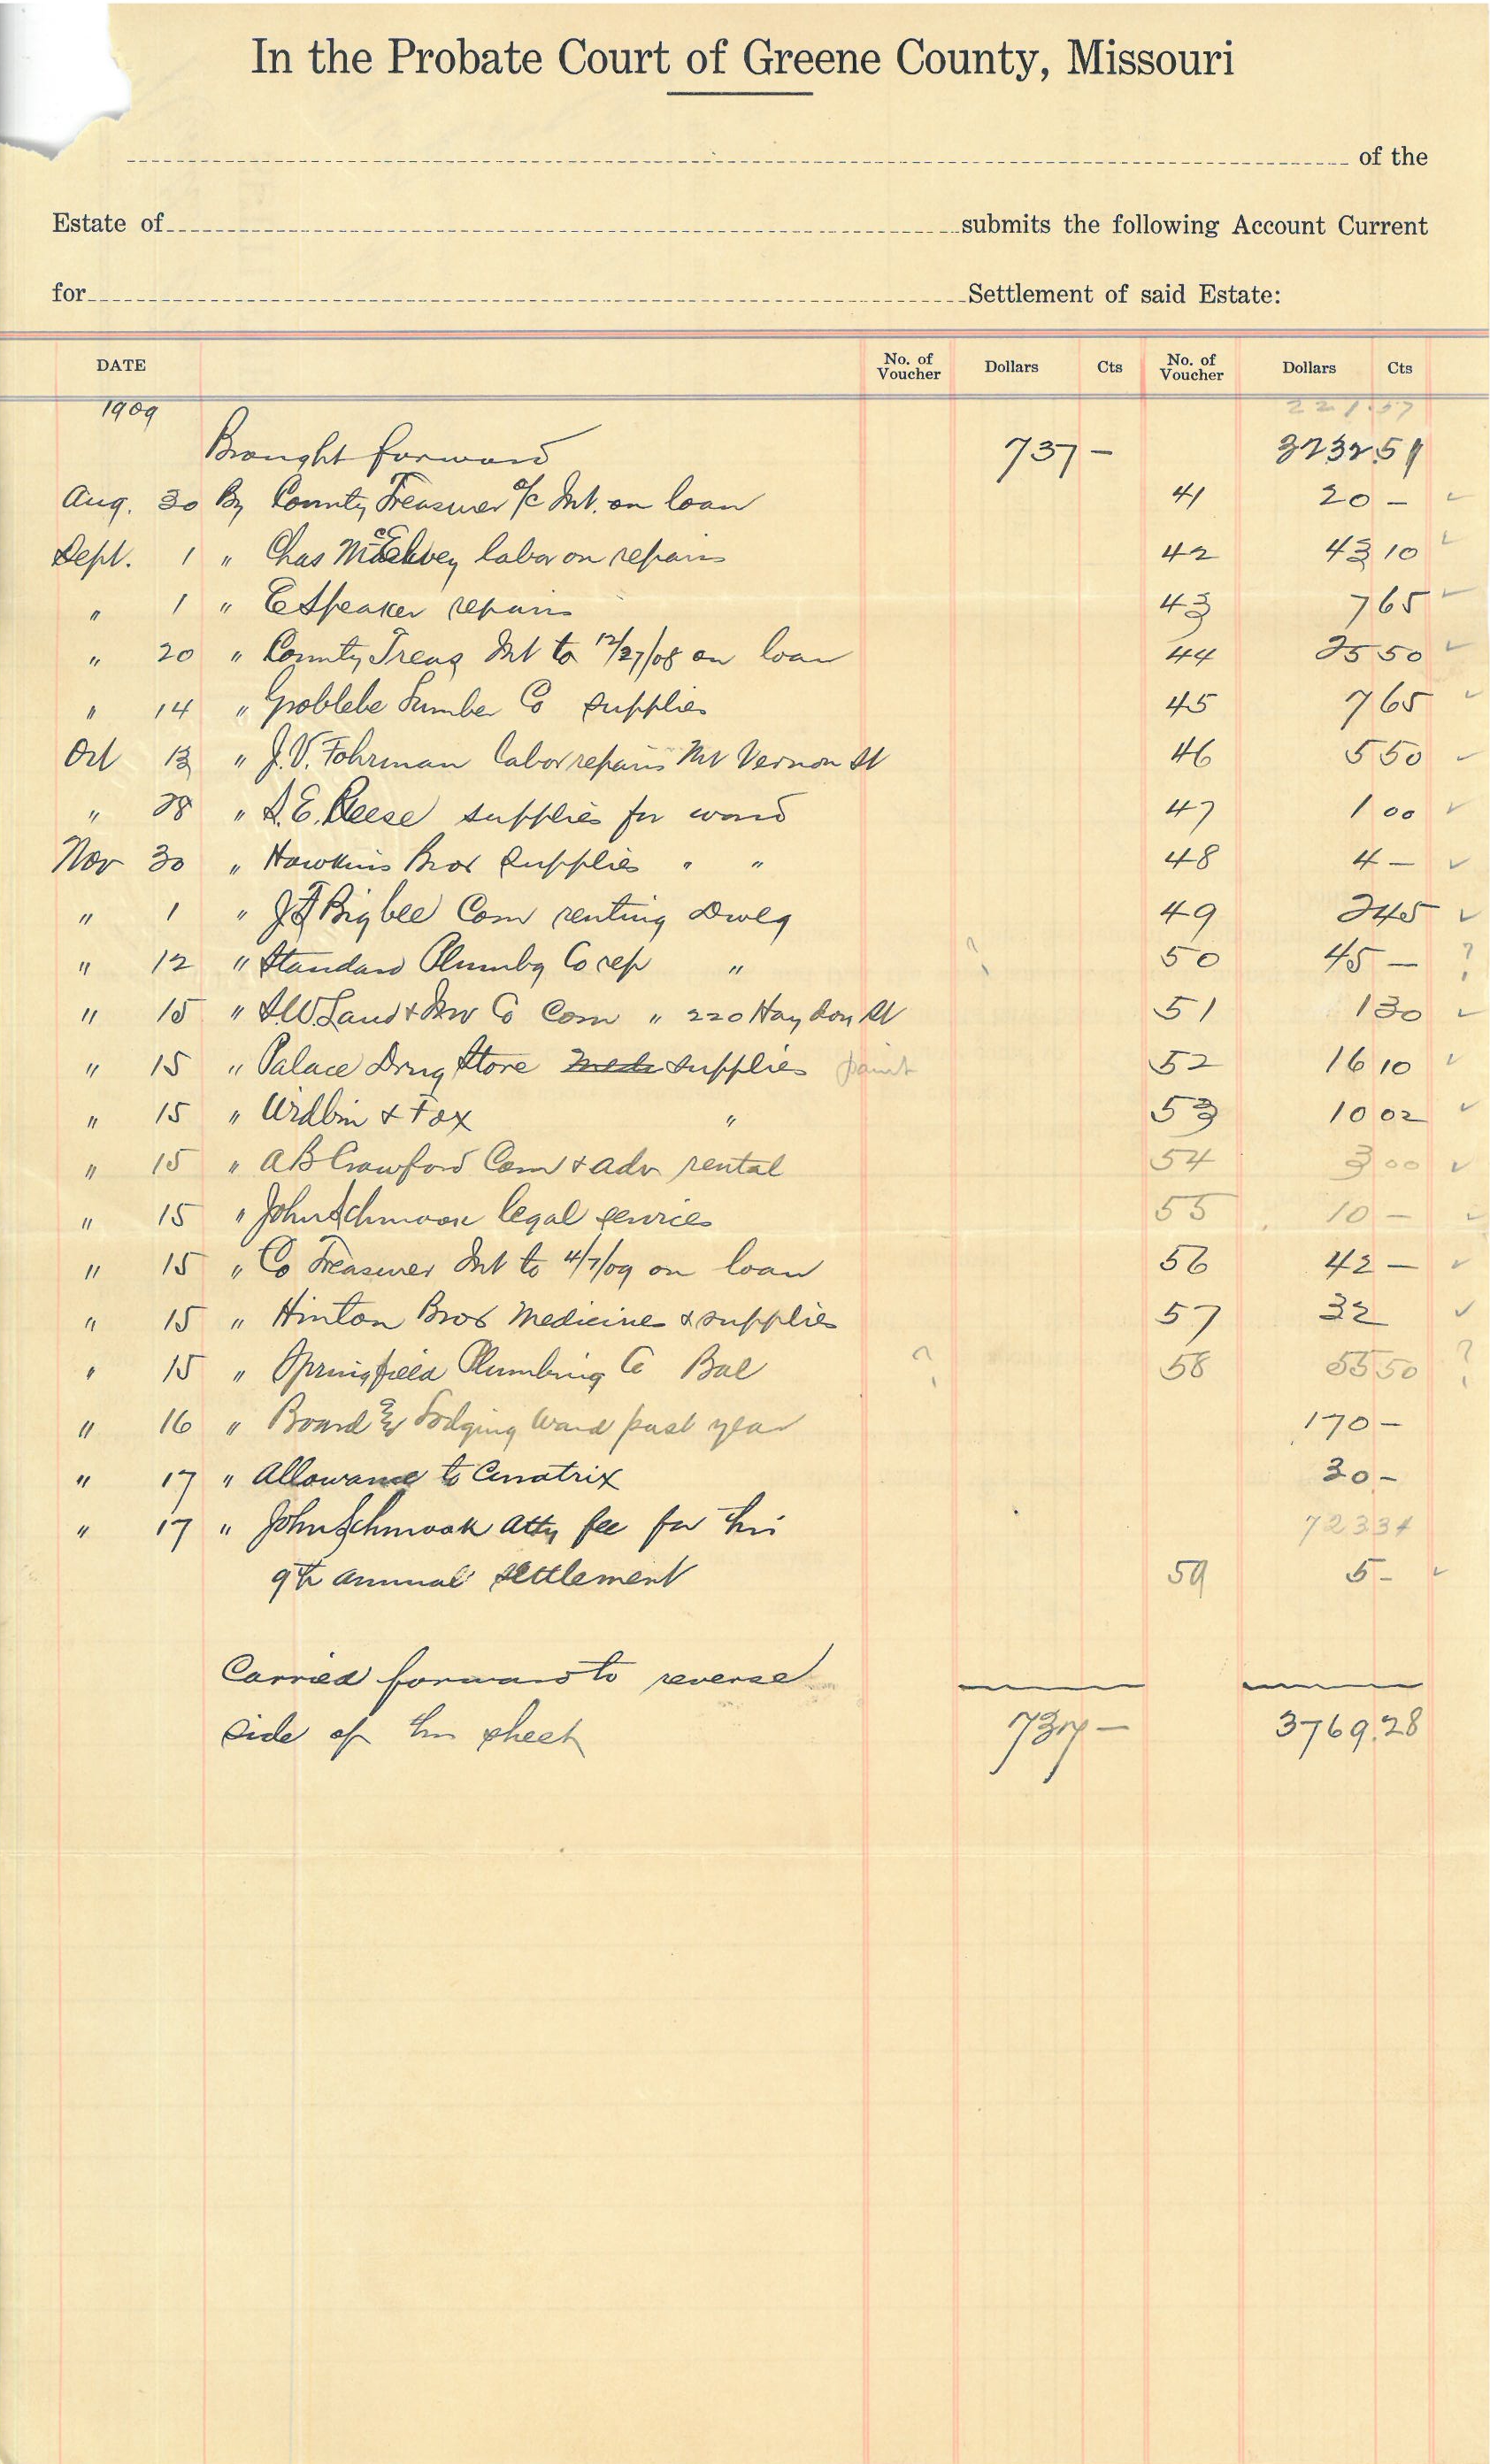 In the Probate Court of Greene County, Missouri
of the
Estate of submits the following Account Current
for Settlement of said Estate:
DATE No. of Voucher Dollars Cts No. of Voucher Dollars Cts
1909 221.57
Brought forward 737 - 3232 51
Aug. 30 By County Treasurer a/c Int. on loan 41 20 - ✓
Sept. 1 " Chas labor on repairs 42 43 10 ✓
" 1 " E Speaker repairs 43 7 65 ✓
" 20 " County Treas Int to 12/27/08 on loan 44 25 50 ✓
" 14 " Lumber Co supplies 45 7 65 ✓
Oct 13 " J.V. Fohrman labor repairs Mt Vernon St 46 5 50 ✓
" 28 " S.E. Reese supplies for ward 47 1 00 ✓
Nov 30 " Hawkins Bros supplies " " 48 4 - ✓
" 1 " J F Bigbee Com renting Dwlg 49 2 45 ✓
" 12 " Standard Plumbg Co rep " ? 50 45 - ?
" 15 " S.W. Land & Inv Co Com " 220 Haydon St 51 1 30 ✓
" 15 " Palace Drug Store Meds supplies paint 52 16 10 ✓
" 15 " & Fox " 53 10 02 ✓
" 15 " A B Crawford Com & adv rental 54 3 00 ✓
" 15 " John Schmook legal services 55 10 - ✓
" 15 " Co Treasurer Int to 4/7/09 on loan 56 42 - ✓
" 15 " Hinton Bros Medicines & supplies 57 32 ✓
" 15 " Springfield Plumbing Co Bal ? 58 55 50 ?
" 16 " Board & Lodging Ward past year 170 -
" 17 " Allowance to Curatrix 30 -
" 17 " John Schmook Atty fee for this 723 34
9th annual settlement 59 5 - ✓
Carried forward to reverse
side of this sheet 737 - 3769.28